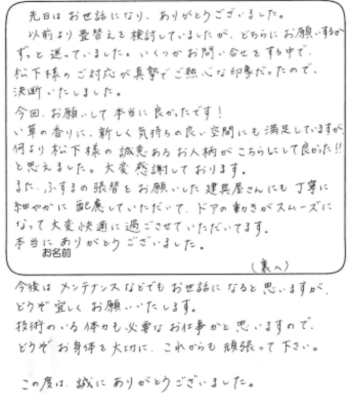 先日はお世話になり、ありがとうございました。
以前より畳替えを検討していましたが、どちらにお願いするか
ずっと迷っていました。いくつかお問い合せをする中で、
松下様のご対応が真摯でご熱心な印象だったので、
決断いたしました。
今回、お願いして本当に良かったです!
い草の香りに、新しく気持ちの良い空間にも満足していますが、
何より松下様の誠意あるお人柄がこちらにして良かった!!
と思えました。大変感謝しております。
また、ふすまの張替をお願いした建具屋さんにも丁寧に
細やかに配慮していただいて、ドアの動きがスムーズに
なって大変快適に過ごさせていただいてます。
本当にありがとうございました。
お名前
(裏へ)
今後はメンテナンスなどでもお世話になると思いますが、
どうぞ宜しくお願いいたします。
技術のいる体力も必要なお仕事かと思いますので、
どうぞお身体を大切に、これからも頑張って下さい。
この度は、誠にありがとうございました。